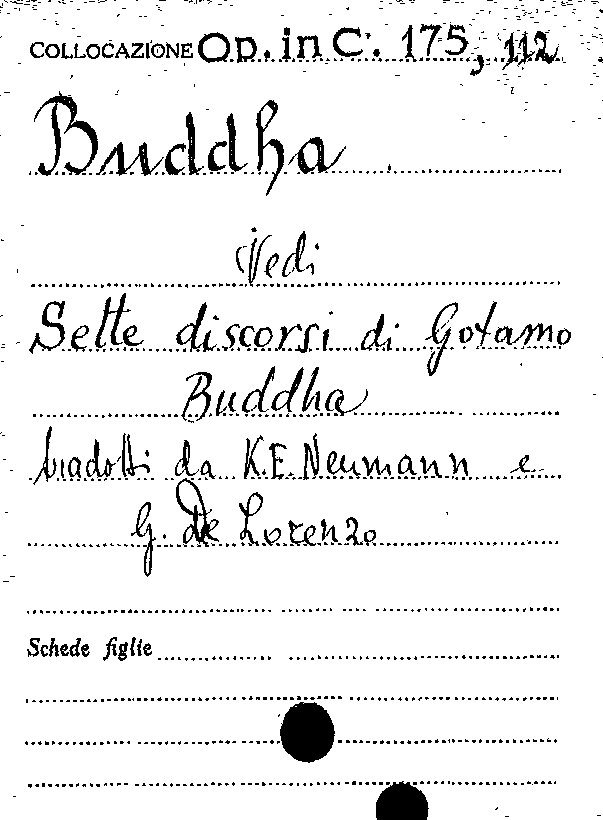 COLLOCAZIONE Op. in C. 175, 112
Buddha
Vedi
Sette discorsi di Gotamo
Buddha
tradotti da K.E. Neumann e
G. De Lorenzo
Schede figlie